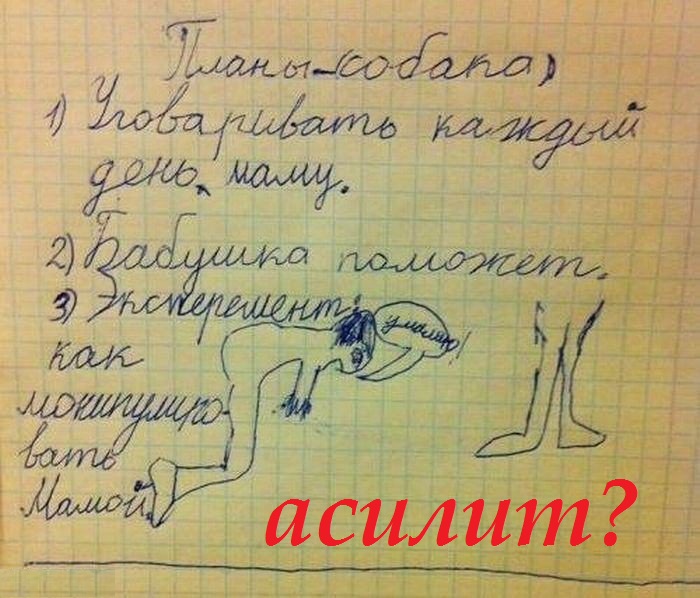 Планы-собака,
1) Уговаривать каждый
день маму.
2) Бабушка поможет.
3) Эксперемент:
умаляю!
как
монипулиро-
вать
Мамой.
асилит?